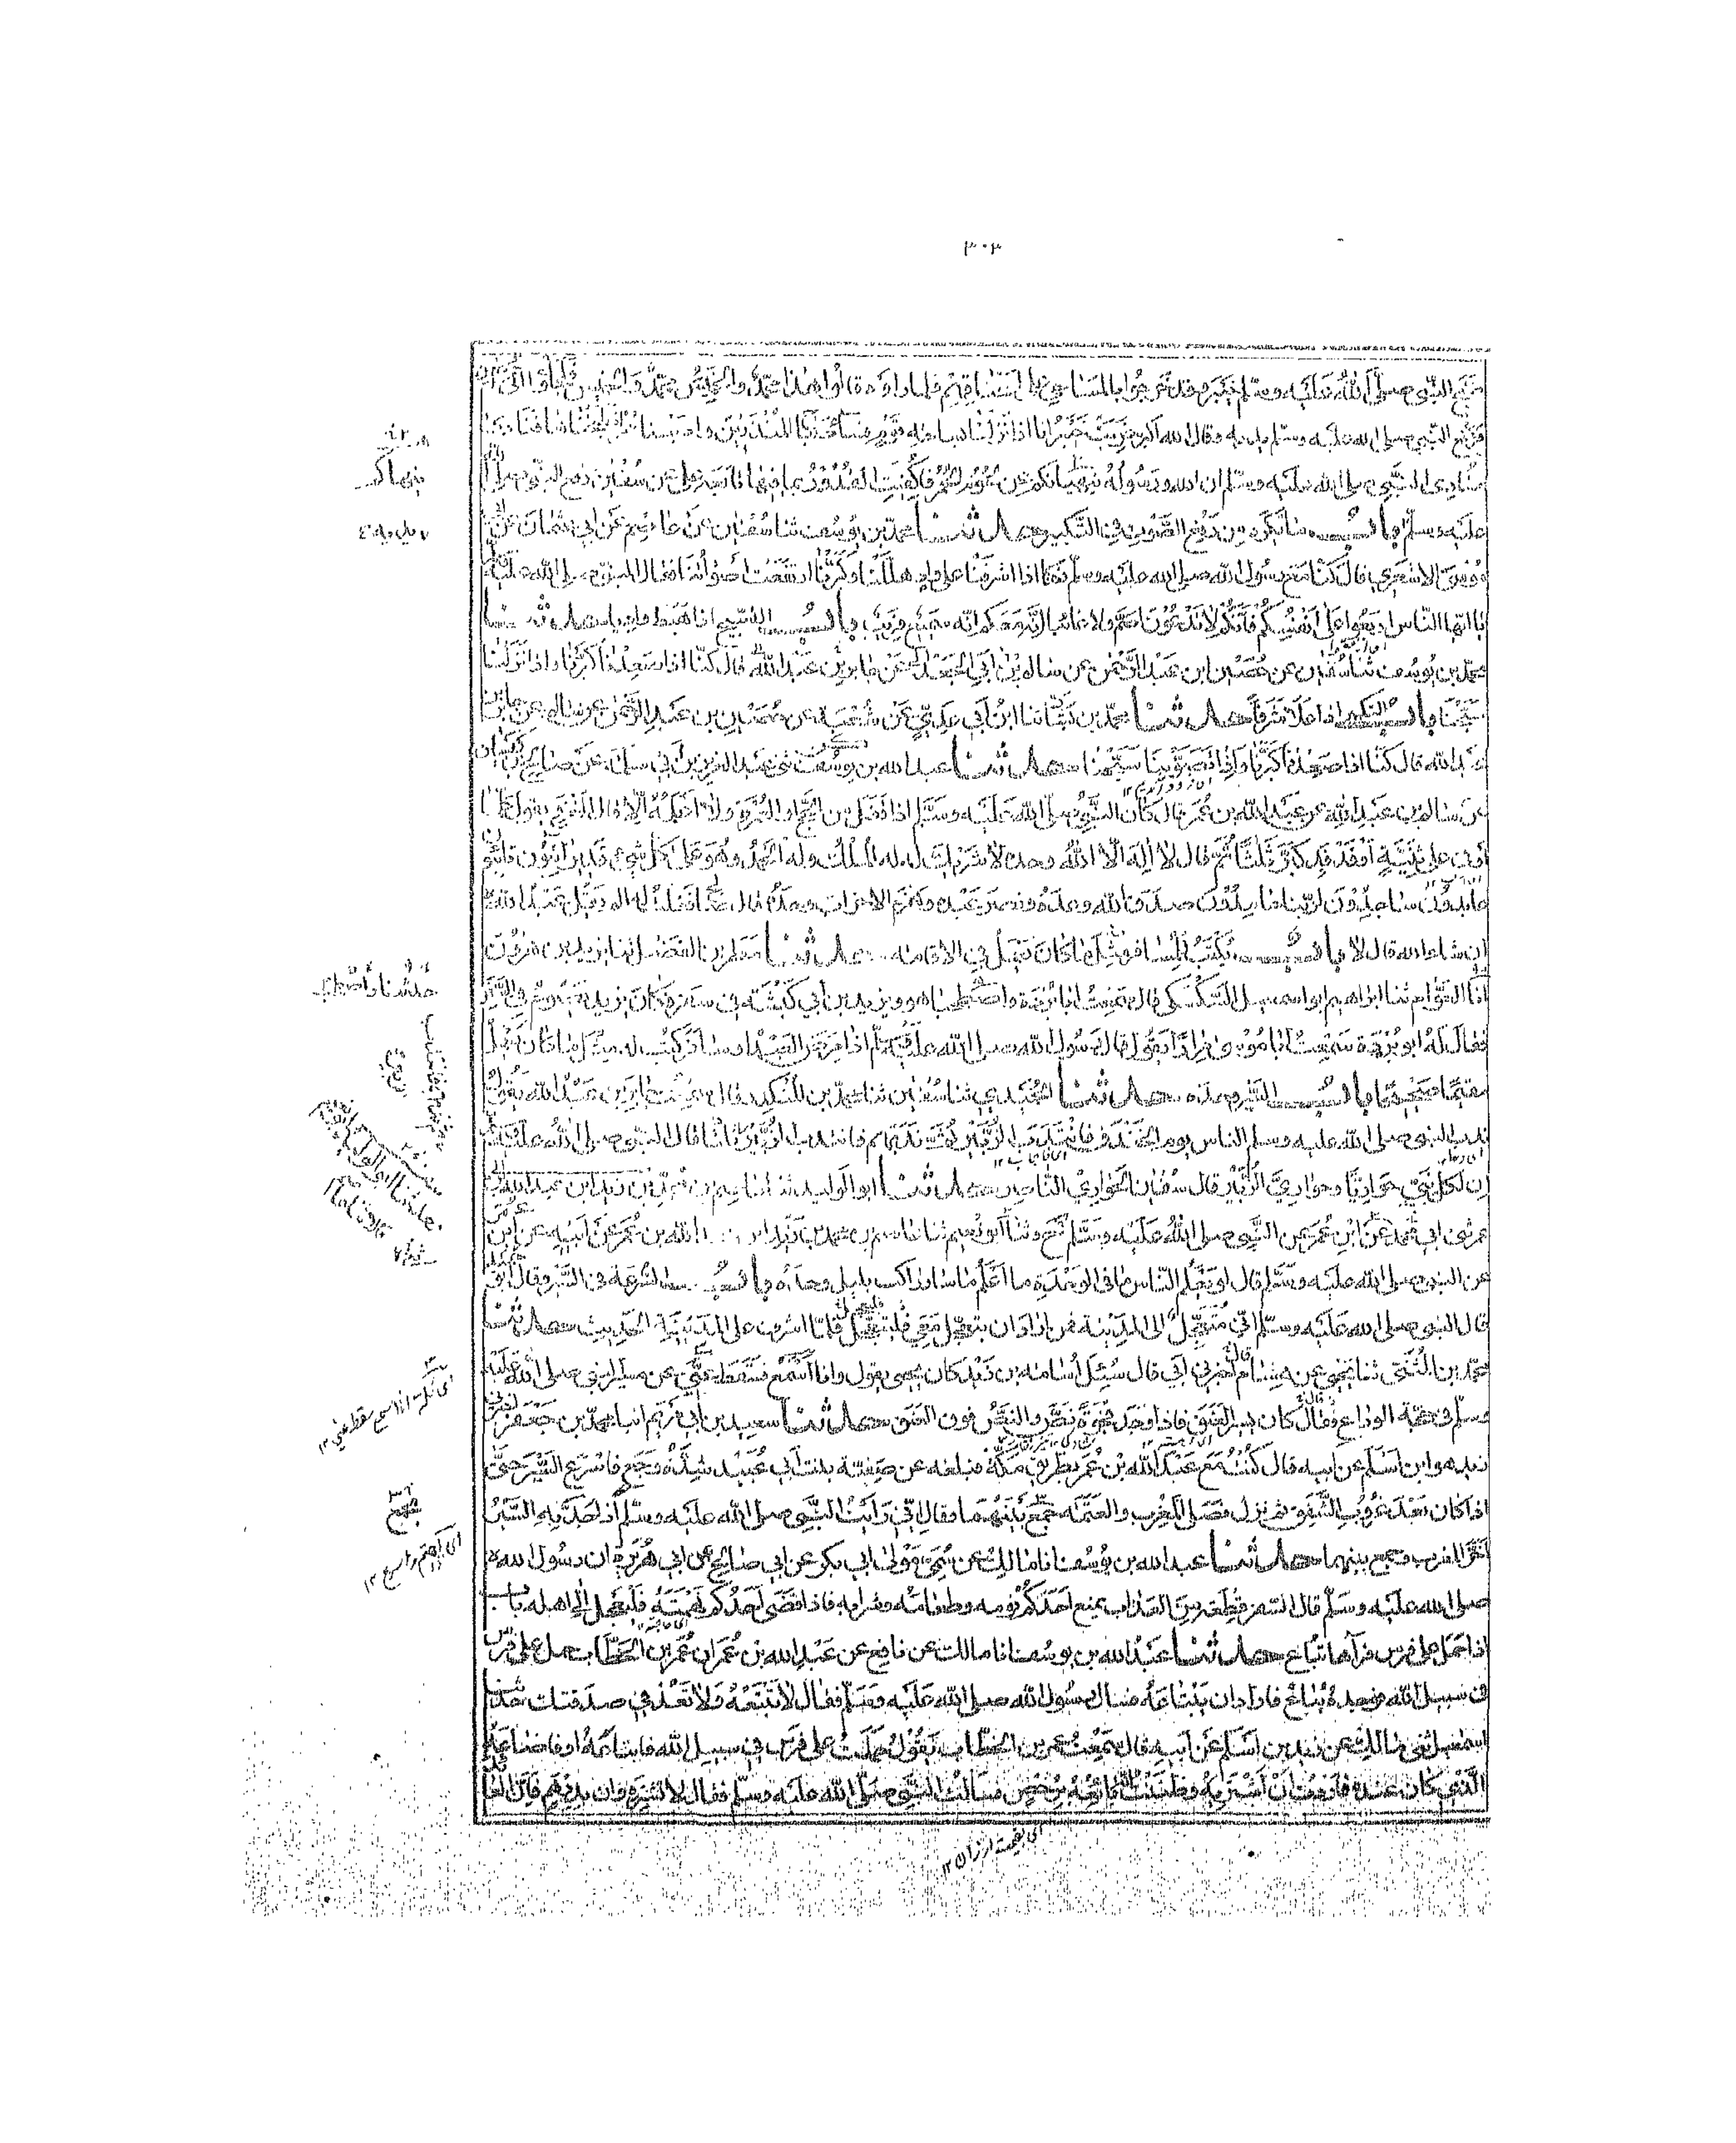 ٣٠٣
صبح النبي صلى الله عليه وسلم خيبر وقد خرجوا بالمساحي على اعناقهم فلما راوه قالوا هذا محمد والخميس محمد والخميس فلجاوا الى الحصن
فرفع النبي صلى الله عليه وسلم يديه وقال الله اكبر خربت خيبر انا اذا نزلنا بساحة قوم فساء صباح المنذرين واصبنا حمرا فطبخناها فنادى
منادي النبي صلى الله عليه وسلم ان الله ورسوله ينهيانكم عن لحوم الحمر فاكفئت القدور بما فيها تابعه علي عن سفين رفع النبي صلى الله
عليه وسلم يديه باب ما يكره من رفع الصوت في التكبير حدثنا محمد بن يوسف ثنا سفين عن عاصم عن ابي عثمان عن ابي
موسى الاشعري قال كنا مع رسول الله صلى الله عليه وسلم فكنا اذا اشرفنا على واد هللنا وكبرنا ارتفعت اصواتنا فقال النبي صلى الله عليه
يا ايها الناس اربعوا على انفسكم فانكم لا تدعون اصم ولا غائبا انه معكم انه سميع قريب باب التسبيح اذا هبط واديا حدثنا
محمد بن يوسف ثنا سفين عن حصين ابن عبد الرحمن عن سالم بن ابي الجعد عن جابر بن عبد الله قال كنا اذا صعدنا كبرنا واذا نزلنا
سبحنا باب التكبير اذا علا شرفا حدثنا محمد بن بشار ثنا ابن ابي عدي عن شعبة عن حصين بن عبد الرحمن عن سالم عن جابر بن
عبد الله قال كنا اذا صعدنا كبرنا واذا تصوبنا سبحنا حدثنا عبد الله بن يوسف ثني عبد العزيز بن ابي سلمة عن صالح بن كيسان
عن سالم بن عبد الله عن عبد الله بن عمر قال كان النبي صلى الله عليه وسلم اذا قفل من الحج او العمرة ولا اعلمه الا قال الغزو يقول كلما
اوفى على ثنية او فدفد كبر ثلثا ثم قال لا اله الا الله وحده لا شريك له له الملك وله الحمد وهو على كل شيء قدير ائبون تائبون
عابدون ساجدون لربنا حامدون صدق الله وعده ونصر عبده وهزم الاحزاب وحده قال صالح فقلت له الم يقل عبد الله
ان شاء الله قال لا باب يكتب للمسافر مثل ما كان يعمل في الاقامة حدثنا مطر بن الفضل ثنا يزيد بن هرون
انا العوام ثنا ابراهيم ابو اسمعيل السكسكي قال سمعت ابا بردة واصطحب هو ويزيد بن ابي كبشة في سفر فكان يزيد يصوم في السفر
فقال له ابو بردة سمعت ابا موسى مرارا يقول قال رسول الله صلى الله عليه وسلم اذا مرض العبد او سافر كتب له مثل ما كان يعمل
مقيما صحيحا باب السير وحده حدثنا الحميدي ثنا سفين ثنا محمد بن المنكدر قال سمعت جابر بن عبد الله يقول
ندب النبي صلى الله عليه وسلم الناس يوم الخندق فانتدب الزبير ثم ندبهم فانتدب الزبير ثلثا قال النبي صلى الله عليه وسلم
ان لكل نبي حواريا وحواري الزبير قال سفين الحواري الناصر حدثنا ابو الوليد ثنا عاصم بن محمد بن زيد ابن عبد الله بن
عمر ثني ابي عن ابن عمر عن النبي صلى الله عليه وسلم ح وثنا ابو نعيم ثنا عاصم بن محمد بن زيد بن عبد الله بن عمر عن ابيه عن ابن عمر
عن النبي صلى الله عليه وسلم قال لو يعلم الناس ما في الوحدة ما اعلم ما سار راكب بليل وحده باب السرعة في السير وقال ابو حميد
قال النبي صلى الله عليه وسلم اني متعجل الى المدينة فمن اراد ان يتعجل معي فليتعجل فلما اشرف على المدينة الحديث حدثنا
محمد بن المثنى ثنا يحيى عن هشام قال اخبرني ابي قال سئل اسامة بن زيد كان يحيى يقول وانا اسمع فسقط عني عن مسير النبي صلى الله عليه
وسلم في حجة الوداع فقال كان يسير العنق فاذا وجد فجوة نص والنص فوق العنق حدثنا سعيد بن ابي مريم انا محمد بن جعفر اخبرني
زيد هو ابن اسلم عن ابيه قال كنت مع عبد الله بن عمر بطريق مكة فبلغه عن صفية بنت ابي عبيد شدة وجع فاسرع السير حتى
اذا كان بعد غروب الشفق ثم نزل فصلى المغرب والعتمة جمع بينهما وقال اني رايت النبي صلى الله عليه وسلم اذا جد به السير
اخر المغرب وجمع بينهما حدثنا عبد الله بن يوسف انا مالك عن سمي مولى ابي بكر عن ابي صالح عن ابي هريرة ان رسول الله
صلى الله عليه وسلم قال السفر قطعة من العذاب يمنع احدكم نومه وطعامه وشرابه فاذا قضى احدكم نهمته فليعجل الى اهله باب
اذا حمل على فرس فرآها تباع حدثنا عبد الله بن يوسف انا مالك عن نافع عن عبد الله بن عمر ان عمر بن الخطاب حمل على فرس
في سبيل الله فوجده يباع فاراد ان يبتاعه فسال رسول الله صلى الله عليه وسلم فقال لا تبتعه ولا تعد في صدقتك حدثنا
اسمعيل ثني مالك عن زيد بن اسلم عن ابيه قال سمعت عمر بن الخطاب يقول حملت على فرس في سبيل الله فابتاعه او فاضاعه
الذي كان عنده فاردت ان اشتريه وظننت انه بائعه برخص فسالت النبي صلى الله عليه وسلم فقال لا تشتره وان بدرهم فان العائد